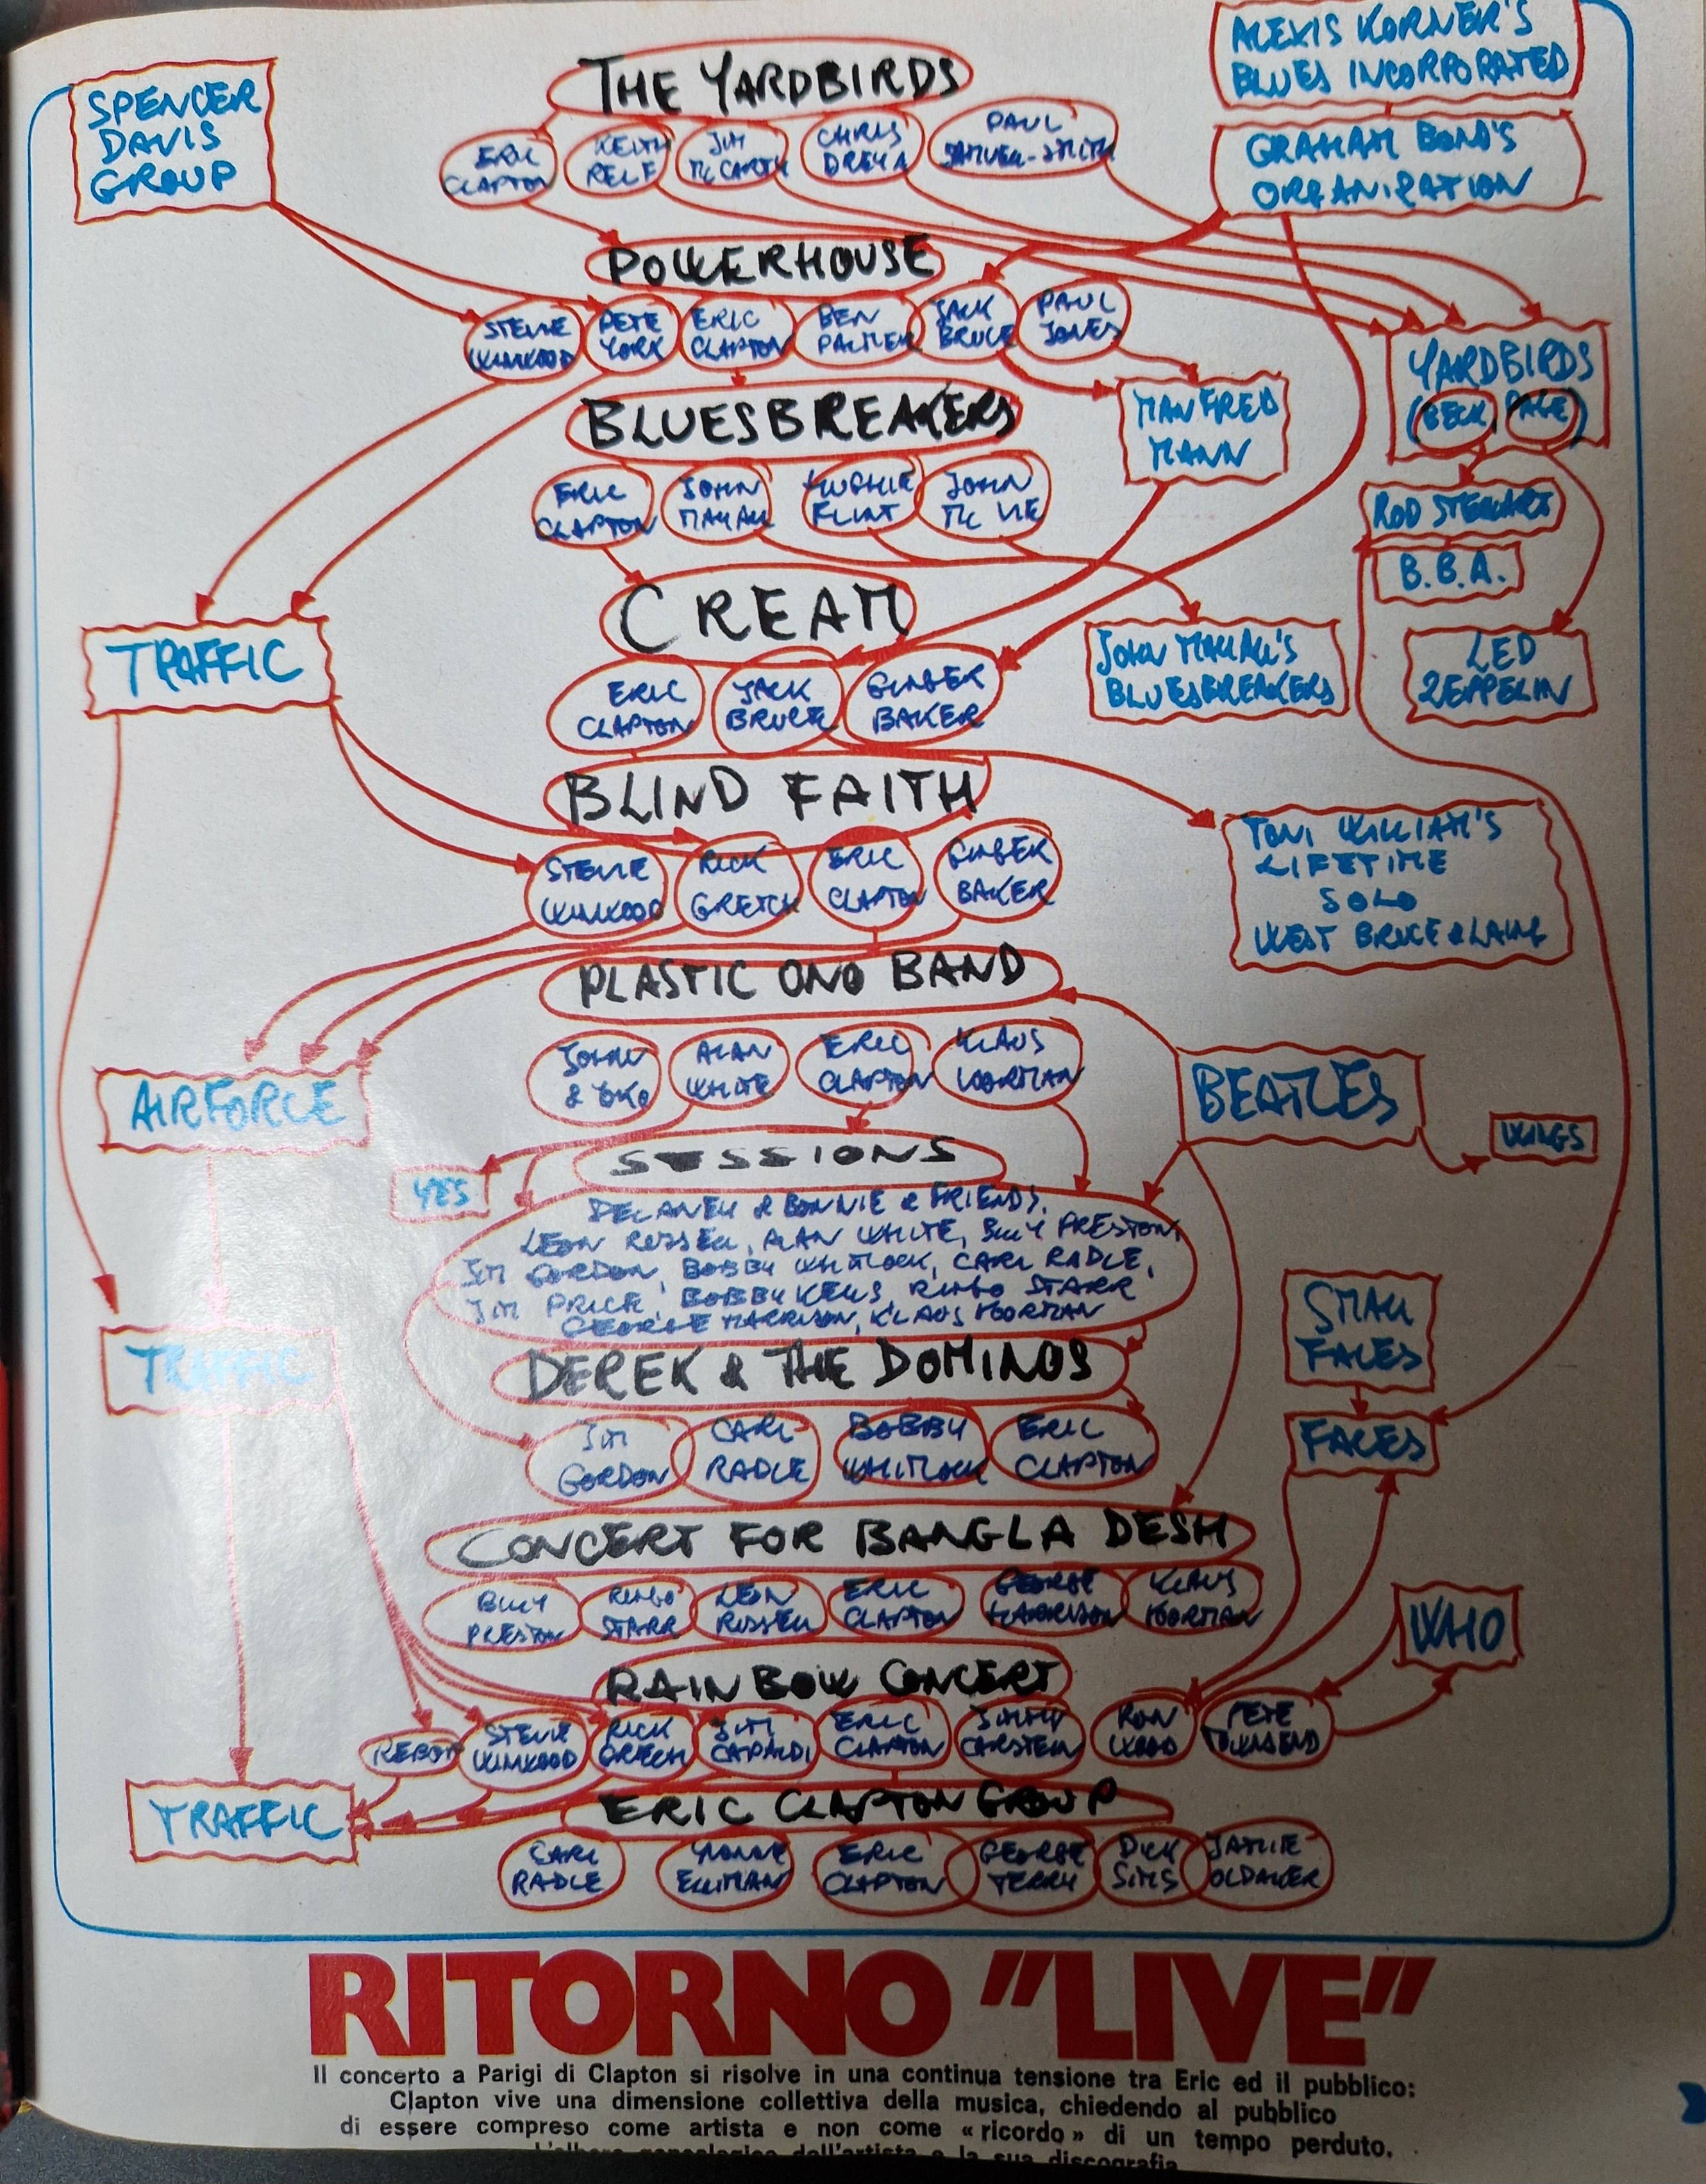 ALEXIS KORNER'S
BLUES INCORPORATED
THE YARDBIRDS
SPENCER
DAVIS
GROUP
ERIC
CLAPTON
KEITH
RELF
JIM
Mc CARTY
CHRIS
DREYA
PAUL
SAMUEL-SMITH
GRAHAM BOND'S
ORGANIZATION
POWERHOUSE
STEVIE
WINWOOD
PETE
YORK
ERIC
CLAPTON
BEN
PALMER
JACK
BRUCE
PAUL
JONES
YARDBIRDS
(BECK, PAGE)
BLUESBREAKERS
MANFRED
MANN
ERIC
CLAPTON
JOHN
MAYALL
HUGHIE
FLINT
JOHN
Mc VIE
ROD STEWART
B.B.A.
CREAM
TRAFFIC
JOHN MAYALL'S
BLUESBREAKERS
LED
ZEPPELIN
ERIC
CLAPTON
JACK
BRUCE
GINGER
BAKER
BLIND FAITH
TONI WILLIAM'S
LIFETIME
SOLO
WEST BRUCE & LAING
STEVIE
WINWOOD
RICK
GRETCH
ERIC
CLAPTON
GINGER
BAKER
PLASTIC ONO BAND
JOHN
& YOKO
ALAN
WHITE
ERIC
CLAPTON
KLAUS
VOORMAN
AIRFORCE
BEATLES
WINGS
YES
SESSIONS
DELANEY & BONNIE & FRIENDS,
LEON RUSSELL, ALAN WHITE, BILLY PRESTON,
JIM GORDON, BOBBY WHITLOCK, CARL RADLE,
JIM PRICE, BOBBY KEYS, RINGO STARR
GEORGE HARRISON, KLAUS VOORMAN
SMALL
FACES
TRAFFIC
DEREK & THE DOMINOS
JIM
GORDON
CARL
RADLE
BOBBY
WHITLOCK
ERIC
CLAPTON
FACES
CONCERT FOR BANGLA DESH
BILLY
PRESTON
RINGO
STARR
LEON
RUSSELL
ERIC
CLAPTON
GEORGE
HARRISON
KLAUS
VOORMAN
WHO
RAINBOW CONCERT
REBOP
STEVIE
WINWOOD
RICK
GRECH
JIM
CAPALDI
ERIC
CLAPTON
JIMMY
CARSTEIN
RON
WOOD
PETE
TOWNSEND
TRAFFIC
ERIC CLAPTON GROUP
CARL
RADLE
YVONNE
ELLIMAN
ERIC
CLAPTON
GEORGE
TERRY
DICK
SIMS
JAMIE
OLDAKER
RITORNO "LIVE"
Il concerto a Parigi di Clapton si risolve in una continua tensione tra Eric ed il pubblico:
Clapton vive una dimensione collettiva della musica, chiedendo al pubblico
di essere compreso come artista e non come «ricordo» di un tempo perduto.
L'albero genealogico dell'artista e la sua discografia